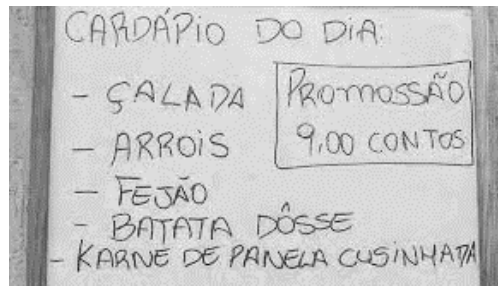 CARDÁPIO DO DIA:
- ÇALADA
- ARROIS
- FEJÃO
- BATATA DÔSSE
- KARNE DE PANELA CUSINHADA
PROMOSSÃO
9,00 CONTOS